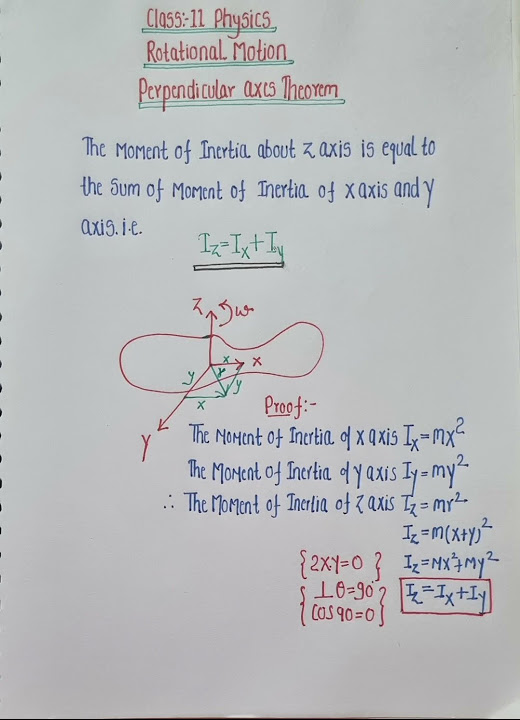 Class:-11 Physics
Rotational Motion
Perpendicular axes Theorem
The Moment of Inertia about Z axis is equal to
the Sum of Moment of Inertia of X axis and Y
axis. i.e.
I_z=I_x+I_y
Z ω
x X
y r y
x
Y
Proof:-
The Moment of Inertia of X axis I_x=mx²
The Moment of Inertia of Y axis I_y=my²
∴ The Moment of Inertia of Z axis I_z=mr²
I_z=m(x+y)²
{2x.y=0 } I_z=Mx²+My²
{⊥ θ=90° } I_z=I_x+I_y
{cos 90=0}